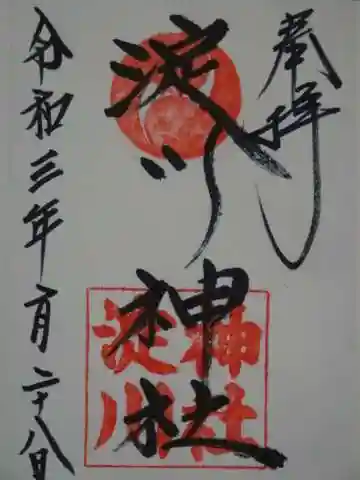 奉拝
淀川神社
淀川神社
令和三年二月二十八日